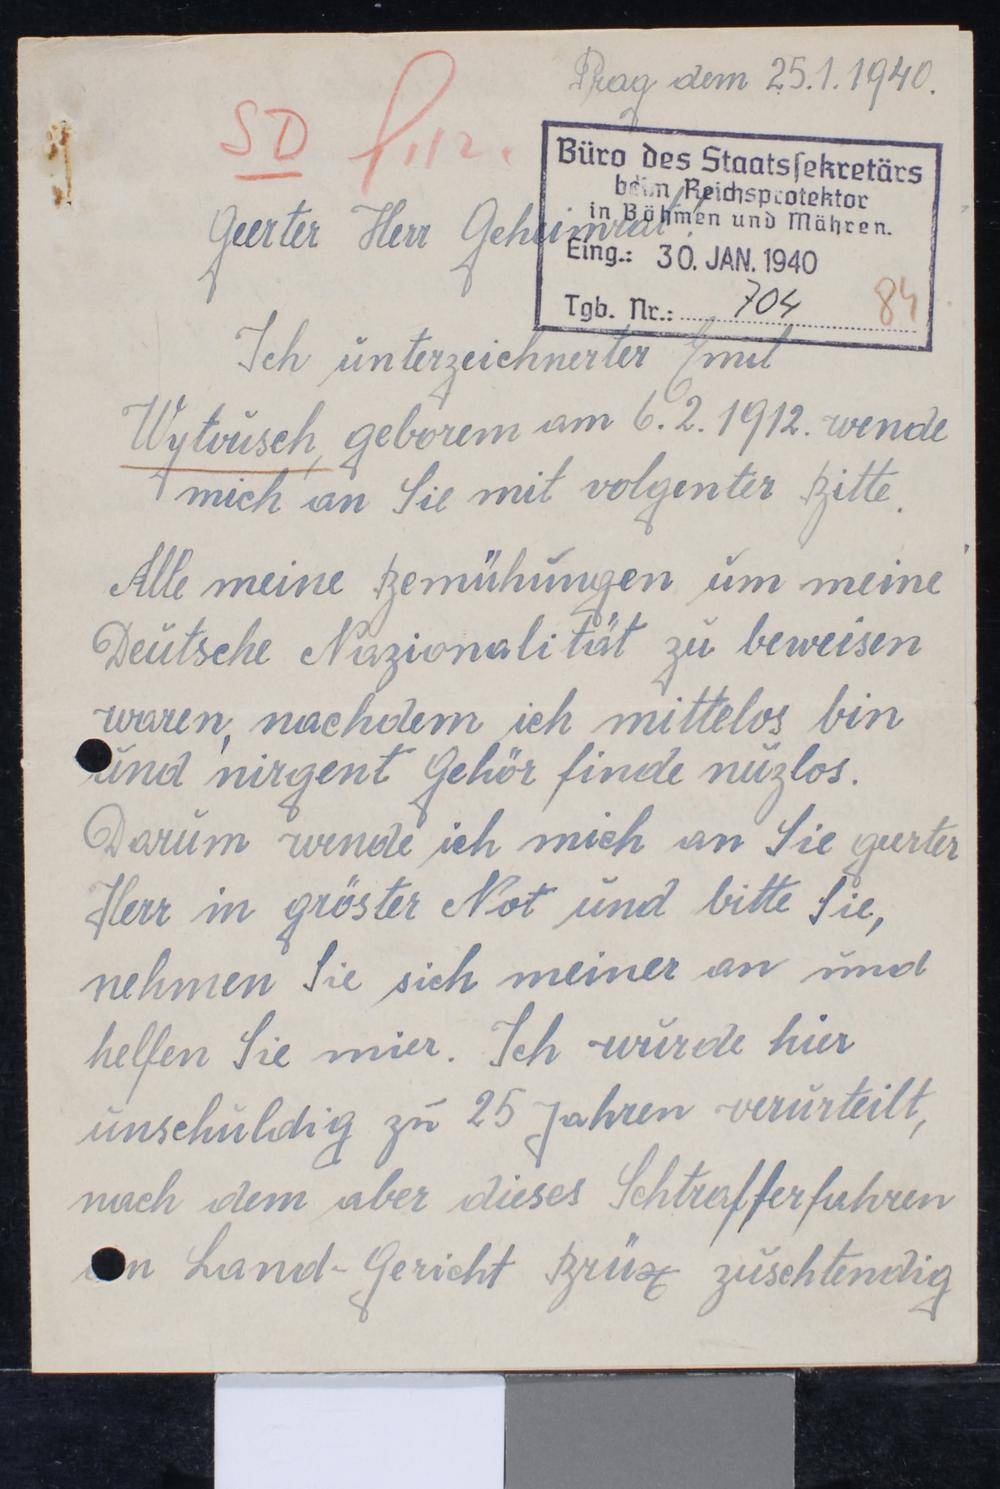 Prag dem 25.1.1940.
SD
Büro des Staatssekretärs
beim Reichsprotektor
in Böhmen und Mähren.
Eing.: 30. JAN. 1940
Tgb. Nr.: 704 84
Geerter Herr Geheimrat!
Ich unterzeichnerter Emil
Wytrusch, geborem am 6.2.1912. wende
mich an Sie mit volgenter Bitte.
Alle meine Bemühungen um meine
Deutsche Nazionalität zu beweisen
waren, nachdem ich mittelos bin
und nirgent Gehör finde nuzlos.
Darum wende ich mich an Sie geerter
Herr in gröster Not und bitte Sie,
nehmen Sie sich meiner an und
helfen Sie mier. Ich wurde hier
unschuldig zu 25 Jahren verurteilt,
nach dem aber dieses Schtrafferfahren
Land-Gericht Brüx zuschtendig